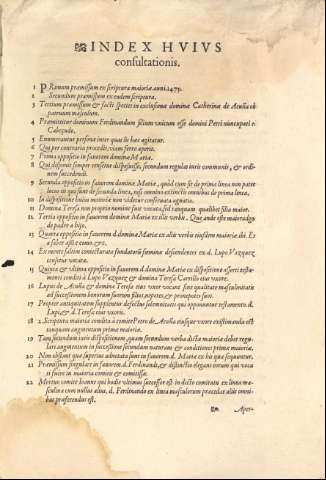 INDEX HVIVS
consultationis.
1 PRimum præmissum ex scriptura maioriæ anni 1479.
2 Secundum præmissum ex eadem scriptura.
3 Tertium præmissum & facti species in exclusiona dominæ Catherinæ de Acuña ob
patruum masculum.
4 Præmittitur dominum Ferdinandum filium vnicum esse domini Petri nuncupati el
Cabeçudo.
5 Enumerantur personæ inter quas lis hæc agitatur.
6 Qui per contraria procedit, viam ferre aperit.
7 Prima oppositio in fauorem dominæ Mariæ.
8 Qui disponit semper censetur disposuisse, secundum regulas iuris communis, & ordi-
nem succedendi.
9 Secunda oppositio in fauorem dominæ Mariæ, quòd cum sit de prima linea non patet
locus iis qui sunt de secunda linea, nisi omnino extinctis omnibus de prima linea.
10 In dispositione huius maioriæ non videtur considerata agnatio.
11 Domina Teresa non proprio nomine fuit vocata, sed tanquam quælibet filia maior.
12 Tertia oppositio in fauorem d. Mariæ ex illis verbis. Que ande este mayoradgo
de padre a hijo.
13 Quarta oppositio in fauorem d. dominæ Mariæ ex illis verbis eiusdem maioriæ, ibi. Es
a saber este como &c.
14 Ex morte saltem commemoratæ fundatricis femina descendentes ex d. Lupo Vazquez
censetur vocatæ.
15 Quinta & vltima oppositio in fauorem dominæ Mariæ ex dispositione asserti testa-
menti conditi à Lupo Vazquez & domina Teresa Carrillo eius vxore.
16 Lupus de Acuña & domina Teresa eius vxor vocant sine qualitate masculinitatis
ad successionem bonorum suorum filias, nepotes, & pronepotes suos.
17 Propter antiquitatem suppletur defectus solemnitatis qui opponuntur testamento d.
Lupi, & d. Teresæ eius vxoris.
18 Scriptura maioriæ condita à comite Petro de Acuña eiusque vxore existimanda est
tanquam augmentum primæ maioriæ.
19 Tam secundum iuris dispositionem, quam secundum verba dictæ maioriæ debet regu-
lari augmentum in successione secundum naturam & conditiones primæ maioriæ.
20 Non obstant quæ superius adnotata sunt in fauorem d. Mariæ ex his quæ sequuntur.
21 Præmissum singulare in fauorem d. Ferdinandi, & distinctio elegans eorum qui voca-
ti fuere in maioria comitis & comitissæ.
22 Mortuo comite Ioanne qui hodie vltimus successor est in dicto comitatu ex linea mas-
culina cum nullus alius, d. Ferdinando ex linea masculorum præcedat aliis omni-
bus præferendus est.
Aper-